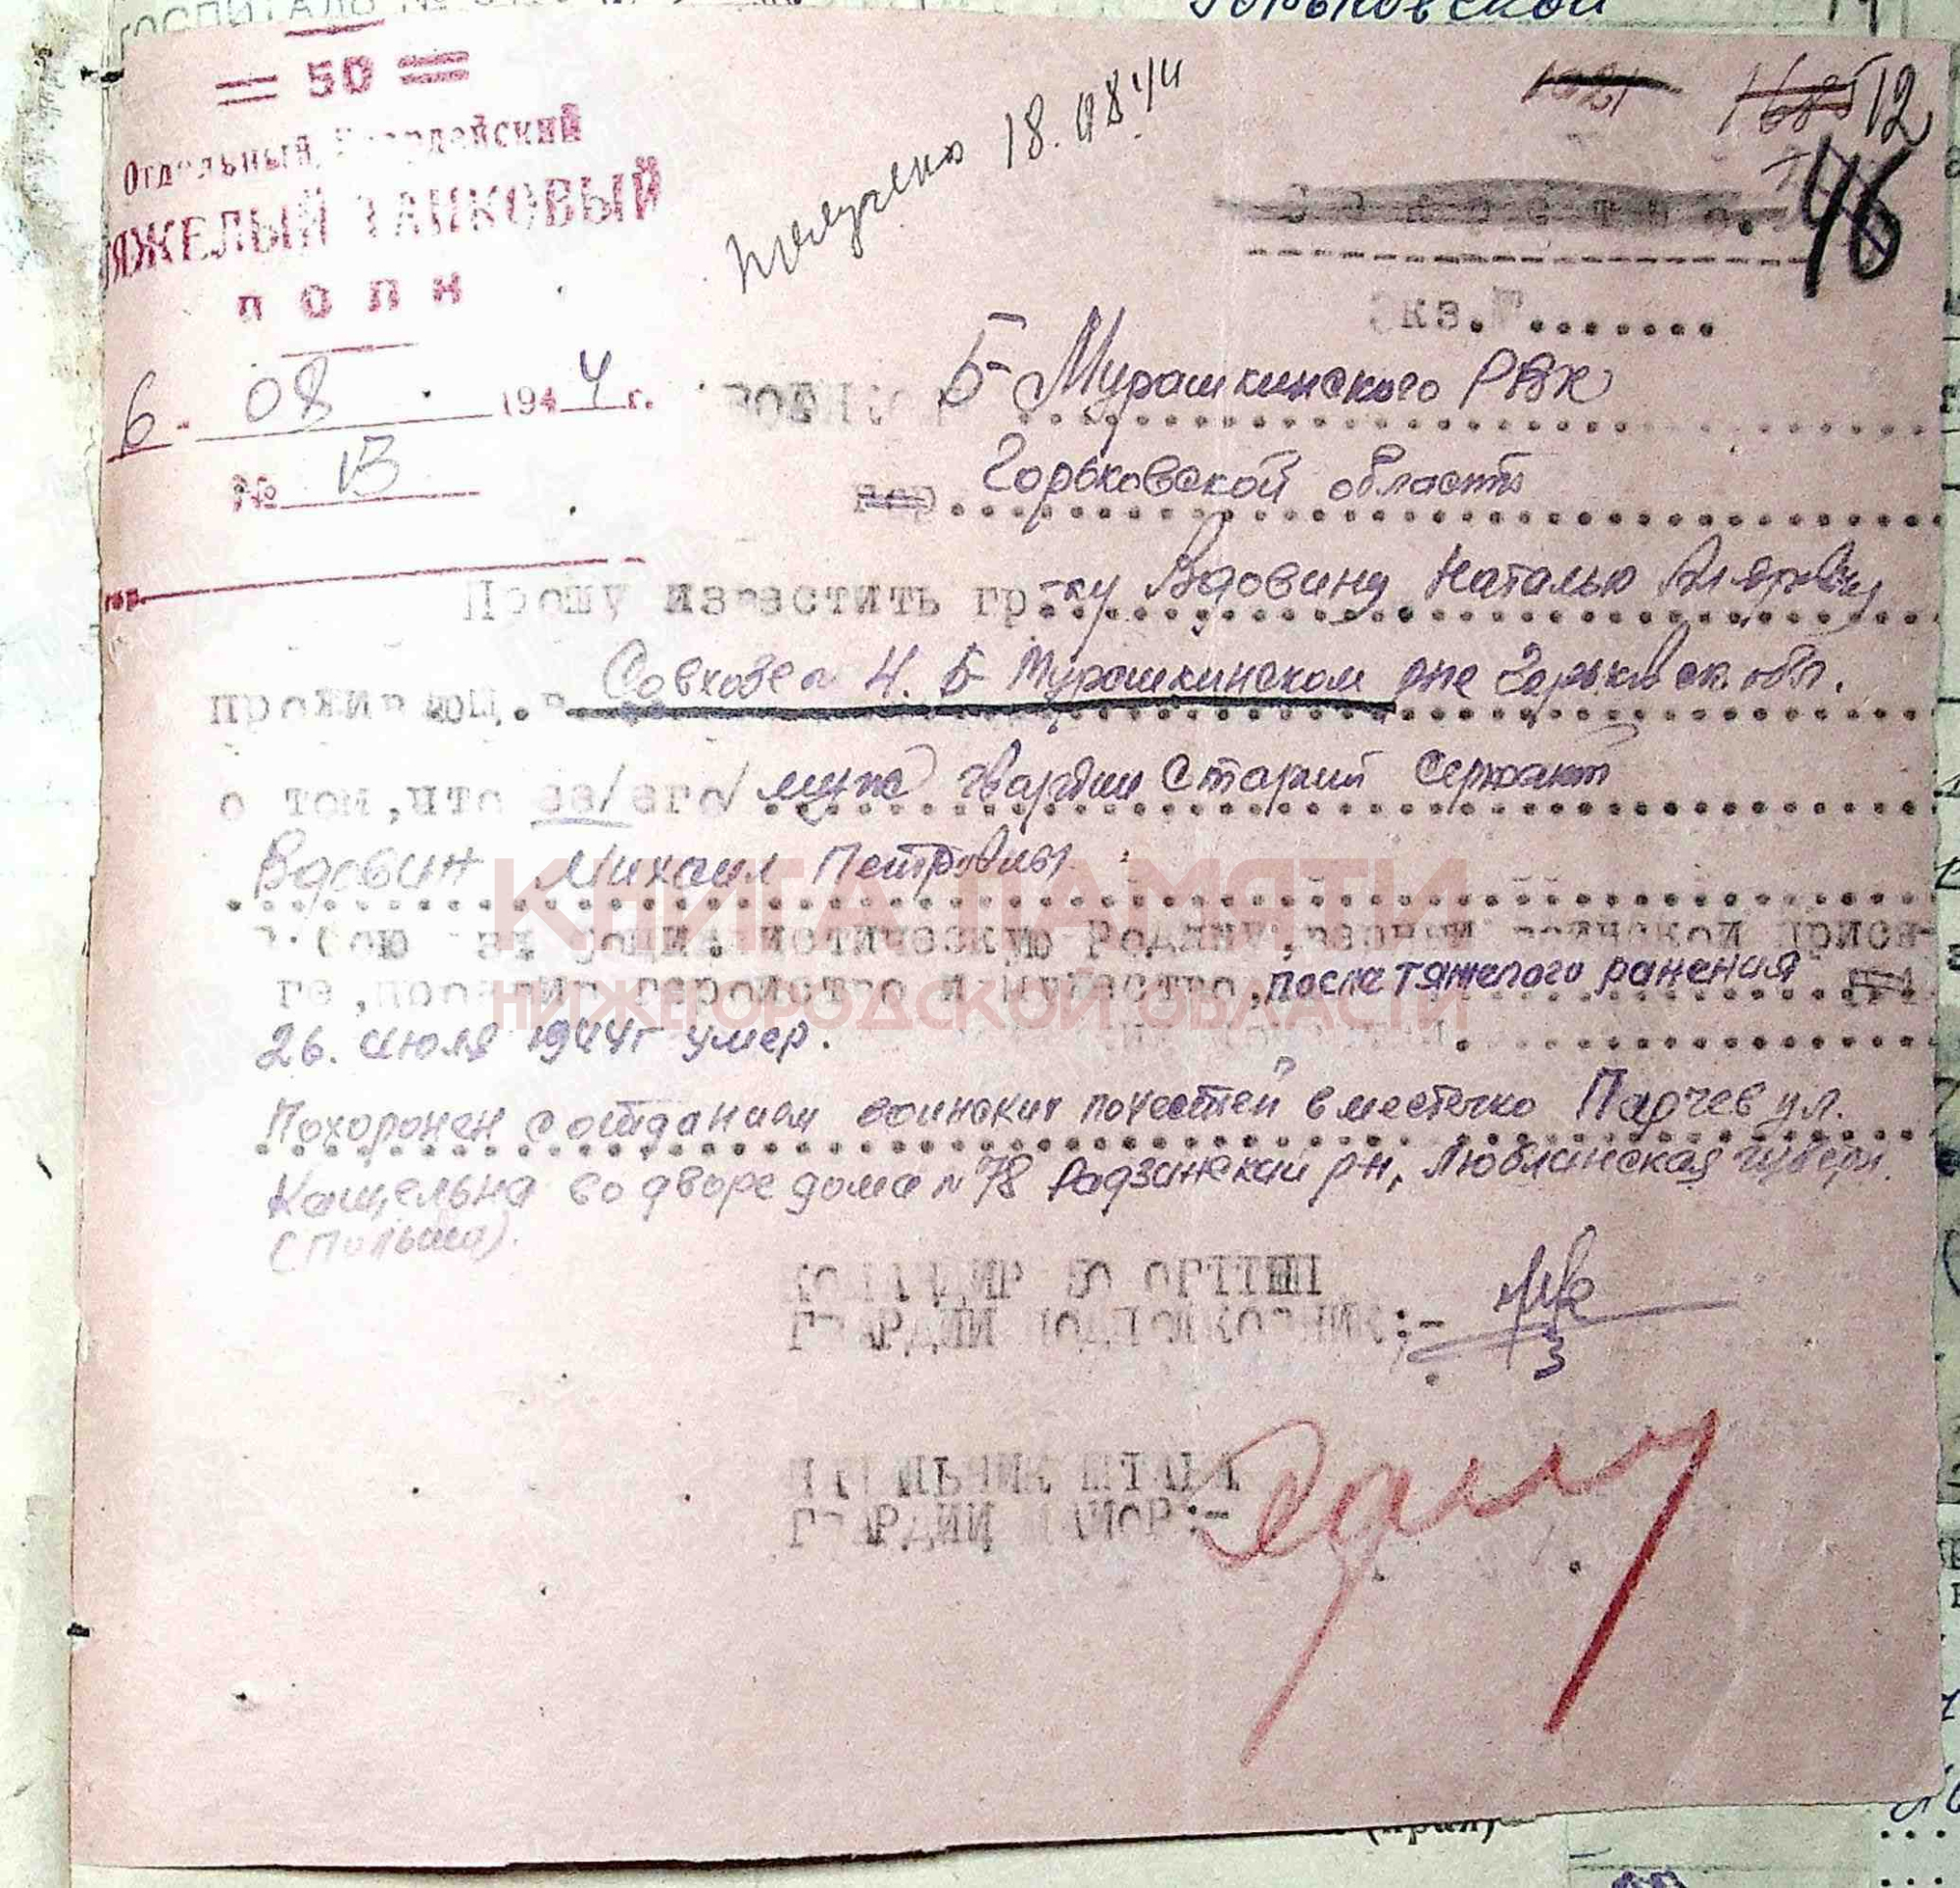 = 50 =
Отдельный Гвардейский
ТЯЖЕЛЫЙ ТАНКОВЫЙ
ПОЛК
6 - 08 1944 г.
№ 13
гор.
получено 18.08.44
12
46
Экз.№.......
Б-Мурашкинского РВК
Горьковской области
Прошу известить гр-ку Вдовину Наталью
прожив ющ. в Совхозе № 4. Б Мурашкинском Горьковск. обл.
о том, что ее/его/ муж гвардии Старший Сержант
Вдовин Михаил Петрович
в бою за социалистическую Родину, верный воинской прися-
ге, проявив геройство и мужество, после тяжелого ранения
26. июля 1944г умер.
Похоронен с отданием воинских почестей в местечко Парчев ул.
Кащельна во дворе дома №78 Радзинский р-н, Люблинская губерн.
(Польша).
КОМАНДИР 50 ОГТТП
ГВАРДИИ ПОДПОЛКОВНИК:-
НАЧАЛЬНИК ШТАБА
ГВАРДИИ МАЙОР:-
КНИГА ПАМЯТИ
НИЖЕГОРОДСКОЙ ОБЛАСТИ